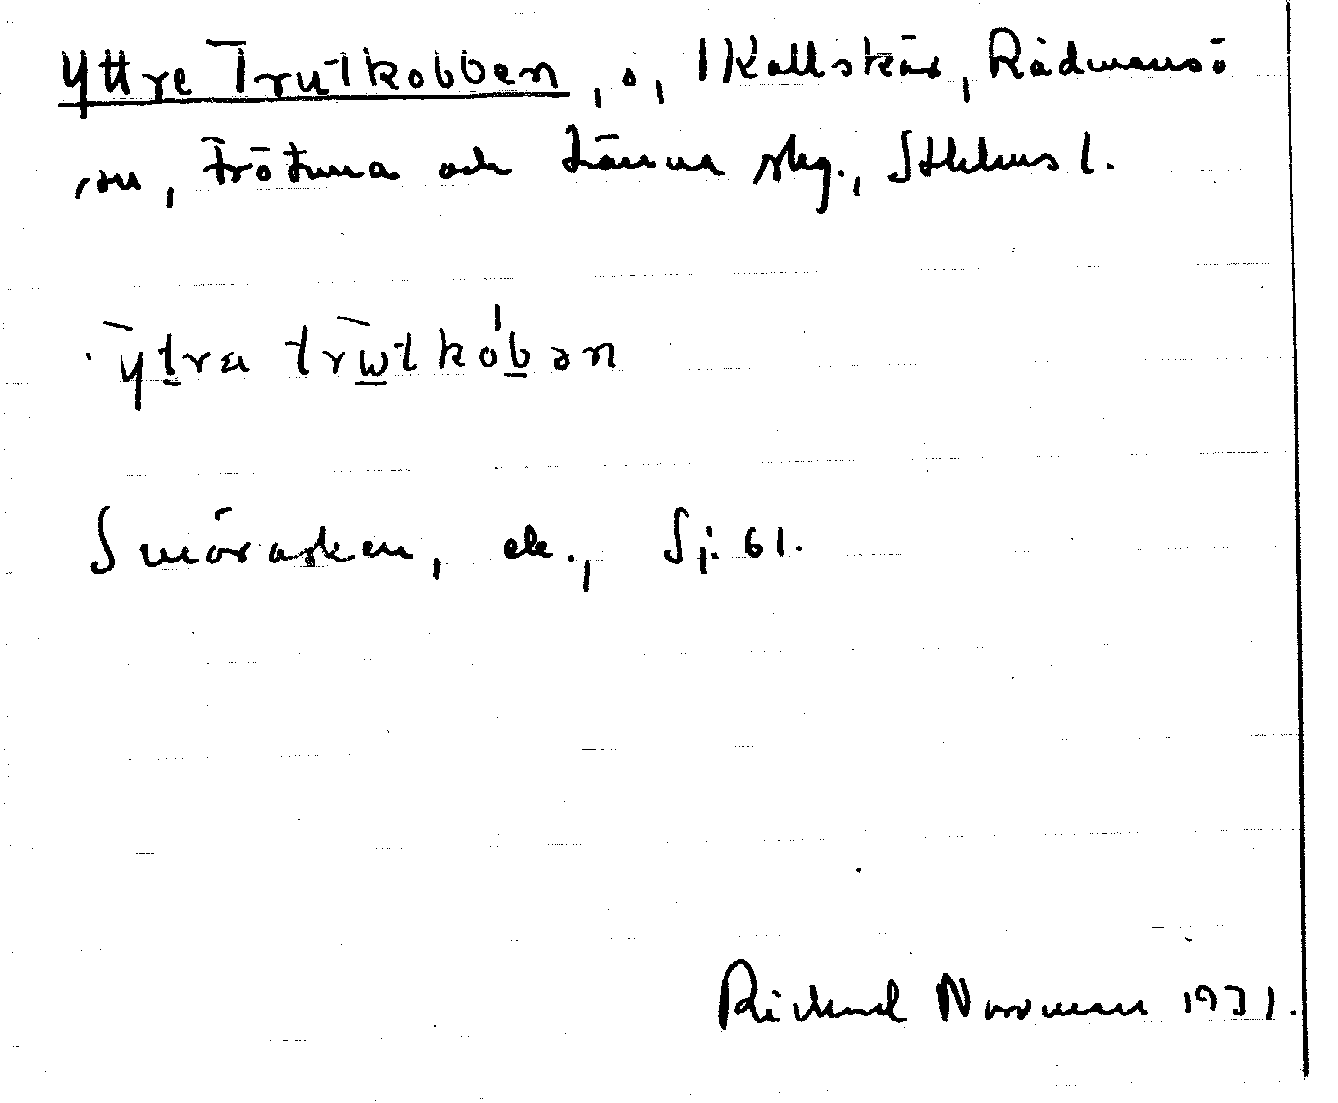 Yttre Trutkobben, ö, Kallskär, Rådmansö
sn, Frötuna och Länna skg., Sthlms l.
ytra trwtkoban
Smörasken, ek., Sj. 61.
Rickard Norrman 1931.